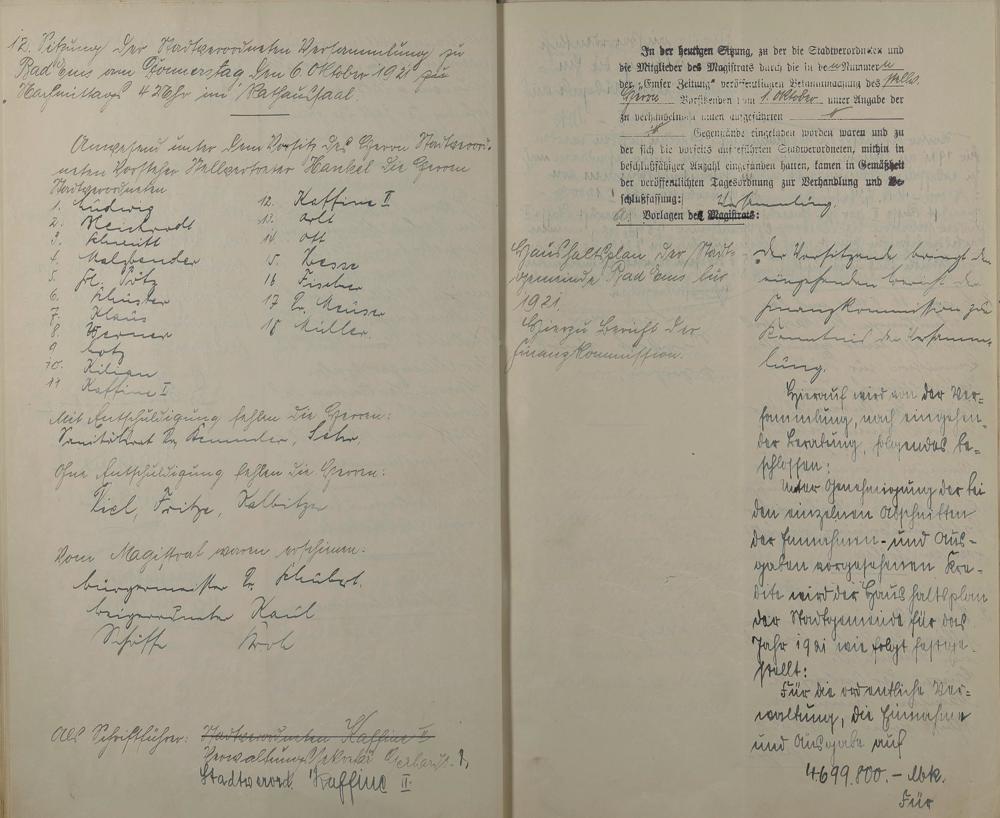 12. Sitzung der Stadtverordneten Versammlung zu
Bad Ems am Donnerstag den 6. Oktober 1921 zu
Nachmittags 4 Uhr im Rathaussaal
Anwesend unter dem Vorsitz des Herrn Stadtverord-
neten Vorsteher Stellvertreter Hankel die Herren
Stadtverordneten
1. Ludwig
2.
3. Schmitt
4. Malzbender
5.
6. Schuster
7. Klaus
8. Werner
9. Lotz
10. Kilian
11. Kaffine I
12. Kaffine II
13. Arlt
14. Ott
15. Besse
16. Fischer
17 Dr. Meuser
18 Müller.
Mit Entschuldigung fehlen die Herren:
Sanitätsrat Dr.
Ohne Entschuldigung fehlen die Herren:
Fritze,
Vom Magistrat waren erschienen:
Bürgermeister Dr. Schubert.
Beigeordneter Kaul
Schöffe
Als Schriftführer: Stadtverordneten Kaffine II
Verwaltungssekretär
Stadtverord. Kaffine II.
In der heutigen Sitzung, zu der die Stadtverordneten und
die Mitglieder des Magistrats durch die in den Nummern
der „Emser Zeitung" veröffentlichten Bekanntmachung des stellv.
Herrn Vorsitzenden vom 1. Oktober unter Angabe der
zu verhandelnden unten aufgeführten
Gegenstände eingeladen worden waren und zu
der sich die vorseits aufgeführten Stadtverordneten, mithin in
beschlußfähiger Anzahl eingefunden hatten, kamen in Gemäßheit
der veröffentlichten Tagesordnung zur Verhandlung und Be-
schlußfassung: Versammlung.
a) Vorlagen des Magistrats:
Haushaltsplan der Stadt-
gemeinde Bad Ems für
1921.
Hierzu Bericht der
Finanzkommission.
Der Vorsitzende bringt den
eingehenden Bericht der
Finanzkommission zur
Kenntnis der Versamm-
lung.
Hierauf wird von der Ver-
sammlung, nach eingehen-
der Beratung, folgendes be-
schlossen:
Unter Genehmigung der bei
den einzelnen Abschnitten
der Einnahmen- und Aus-
gaben vorgesehenen Kre-
dite wird der Haushaltsplan
der Stadtgemeinde für das
Jahr 1921 wie folgt festge-
stellt:
Für die ordentliche Ver-
waltung, die Einnahme
und Ausgabe auf
4699.800.- Mk.
Für